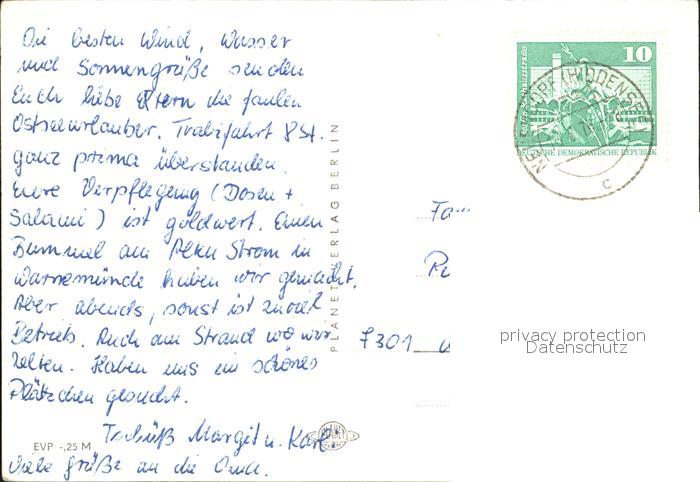 Die besten Wind, Wasser
und Sonnengrüße senden
Euch liebe Eltern die faulen
Ostseeurlauber. Trabifahrt 8 St.
ganz prima überstanden.
Eure Verpflegung (Dosen +
Salami) ist goldwert. Einen
Bummel am Alten Strom in
Warnemünde haben wir gemacht.
Aber abends, sonst ist zuviel
Betrieb. Auch am Strand wo wir
zelten. Haben uns ein schönes
Plätzchen gesucht.
Tschüß Margit u. Karl
Viele Grüße an die Oma.
EVP -,25 M
PLANET-VERLAG BERLIN
PLANET
10
DEUTSCHE DEMOKRATISCHE REPUBLIK
(HIDDENSEE)
c
Fam
7301
privacy protection
Datenschutz